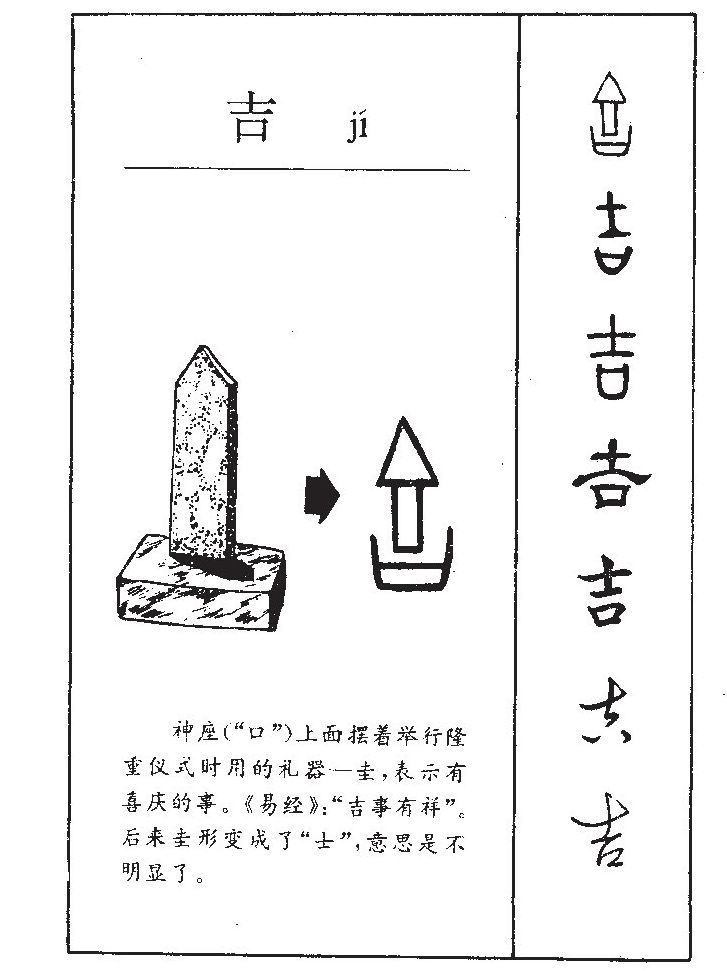 吉 jí
神座(“口”)上面摆着举行隆
重仪式时用的礼器——圭,表示有
喜庆的事。《易经》:“吉事有祥”。
后来圭形变成了“士”,意思是不
明显了。
吉
吉
吉
吉
吉
吉
吉